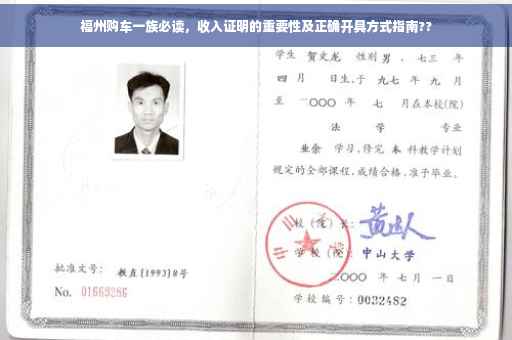 福州购车一族必读，收入证明的重要性及正确开具方式指南??
学生 贺文龙 性别男，七三 年
四 月 日生，于 九七 年 九 月
至 二〇〇〇 年 七 月在本校(院)
法 学 专业
业余 学习，修完 本 科教学计划
规定的全部课程，成绩合格，准予毕业。
校（院）长：
学 校（院）：中山大学
二〇〇〇 年 七 月 一 日
学校编号：0032482
批准文号： 教直[1993]8号
No. 01669286